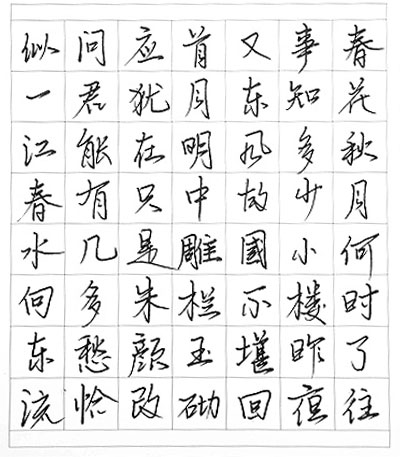 春花秋月何时了往
事知多少小楼昨夜
又东风故國不堪回
首月明中雕栏玉砌
应犹在只是朱颜改
问君能有几多愁恰
似一江春水向东流